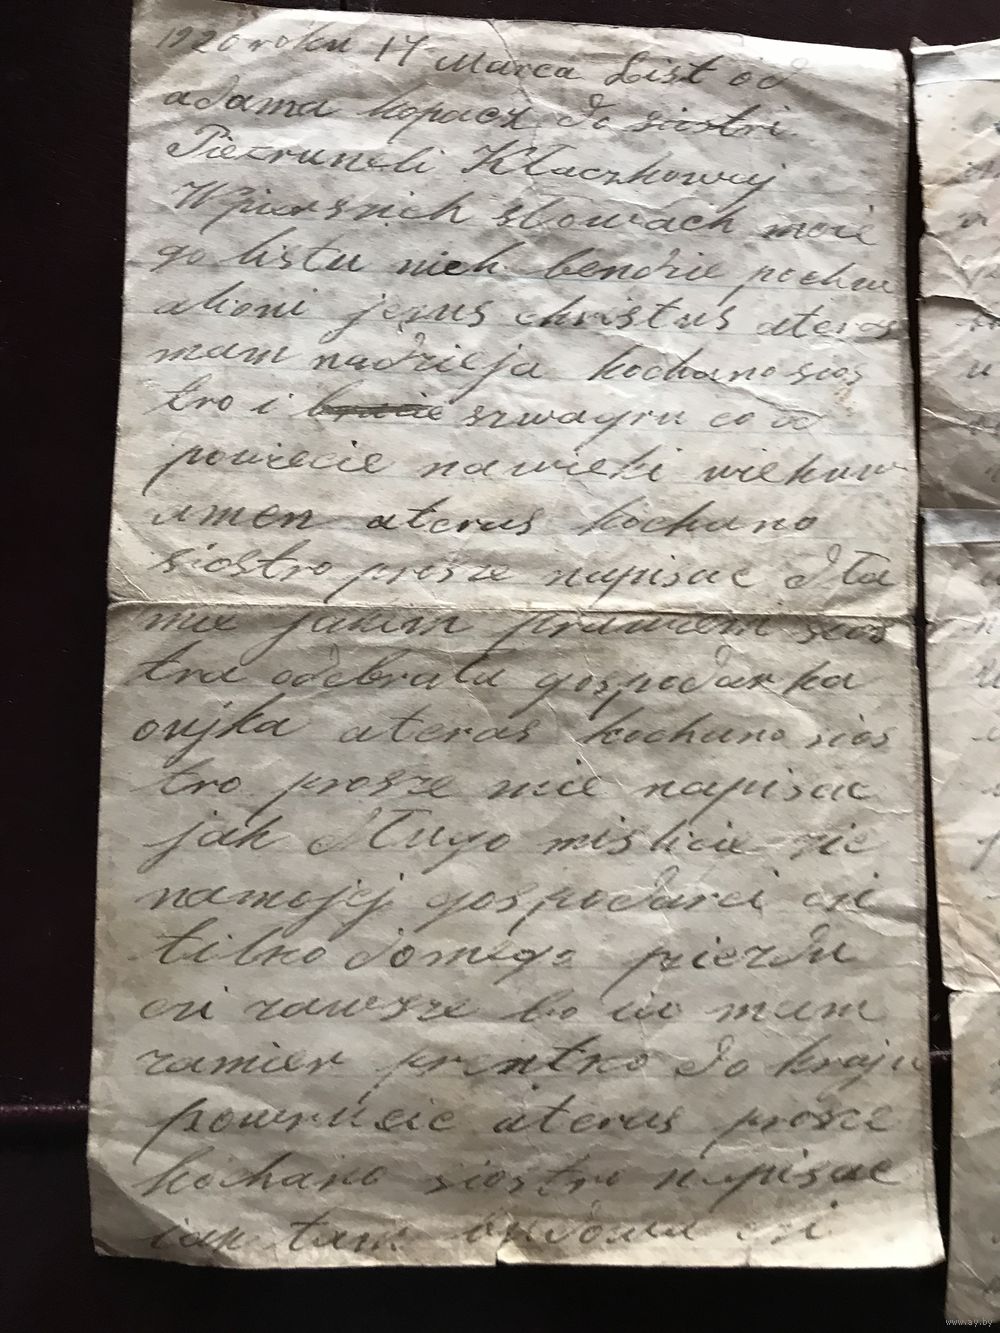 1920 roku 17 Marca List od
adama kopacz do siostri
Pietruneli Kłaczkowej
W pierszich słowach moie
go listu nich bendzie pochw
alioni jezus christus ateras
mam nadzieja kochano sios
tro i bracie szwagru co od
powiecie na wieki wiekuw
amen ateras kochano
siostro prosze napisac dla
mie jakim prawem sios
tra odebrała gospodarka
ojka ateras kochano sios
tro prosze mie napisac
jak długo mislicie zic
na mojej gospodarci ci
tilko do mego
ci zawsze bo io mam
zamier prentko do kraju
powrucic ateras prosze
kochano siostro napisac
jak tam ci
www.ay.by